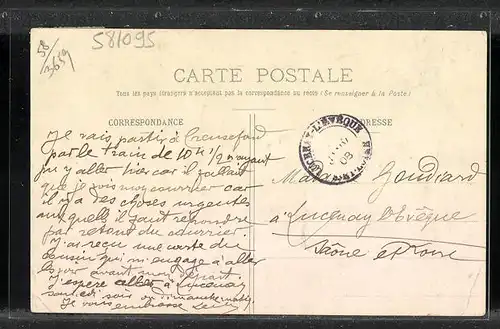 581095
58/3659
CARTE POSTALE
Tous les pays étrangers n'acceptent pas la correspondance au recto (Se renseigner à la Poste)
CORRESPONDANCE
ADRESSE
LUCENAY-L'ÉVÊQUE
08
Je vais partir à
par le train de 10h 1/2 n'ayant
pu y aller hier car il fallait
que je vois mon courrier car
il y a des choses urgentes
auxquelles il faut répondre
par retour du courrier.
J'ai reçu une carte du
cousin qui m'engage à aller
les voir avant mon départ.
J'espère aller à Lucenay
samedi soir ou dimanche matin
Je vous embrasse
Goudiard
à Lucenay l'Evêque
Saône et Loire